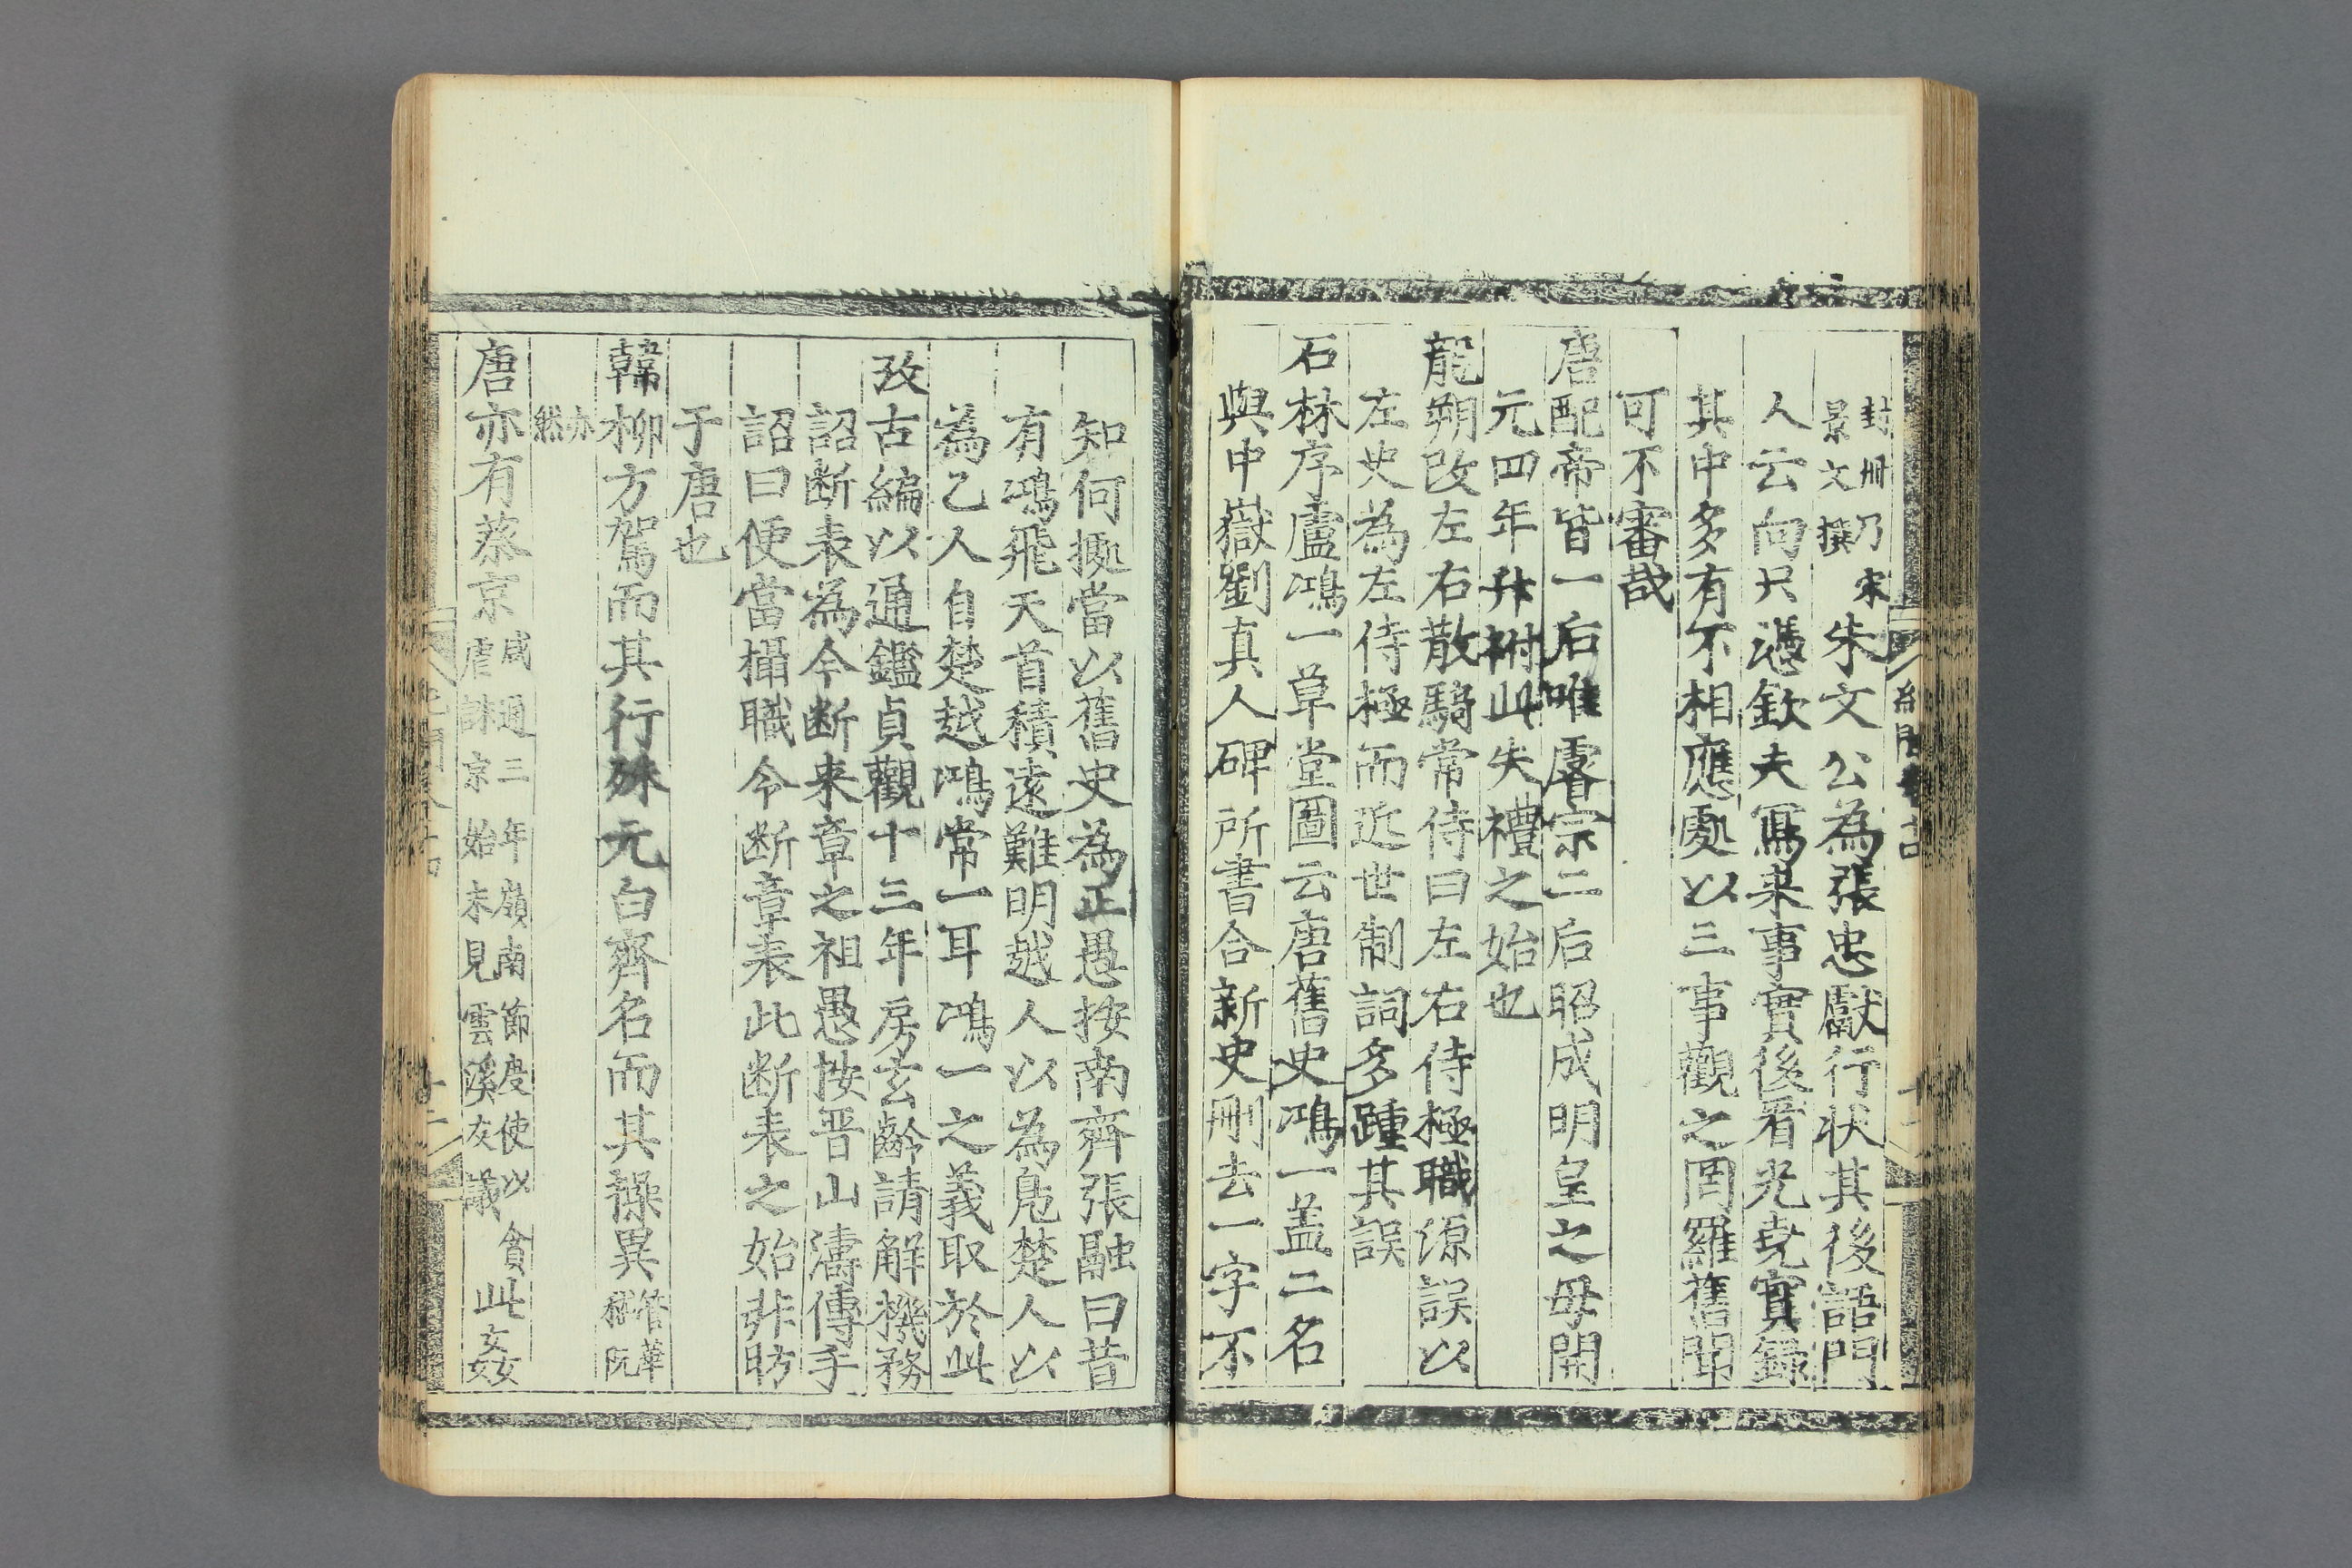 封冊乃宋景文撰朱文公為張忠獻行狀其後語門
人云向只憑欽夫寫来事實後看光堯實録
其中多有不相應處以三事觀之罔羅舊聞
可不審哉
唐配帝皆一后唯睿宗二后昭成明皇之毋開
元四年升祔此失禮之始也
龍朔改左右散騎常侍曰左右侍極職源誤以
左史為左侍極而近世制詞多踵其誤
石林序盧鴻一草堂圖云唐舊史鴻一盖二名
與中嶽劉真人碑所書合新史刪去一字不
知何㨿當以舊史為正愚按南齊張融曰昔
有鴻飛天首積遠難明越人以為鳬楚人以
為乙人自楚越鴻常一耳鴻一之義取於此
攷古編以通鑑貞觀十三年房玄齡請解機務
詔断表為今断来章之祖愚按晋山濤傳手
詔曰便當攝職令断章表此断表之始非昉
于唐也
韓柳方駕而其行殊元白齊名而其操異管華嵇阮
亦然
唐亦有蔡京咸通三年嶺南節度使以貪虐誅京始末見雲溪友議此姦